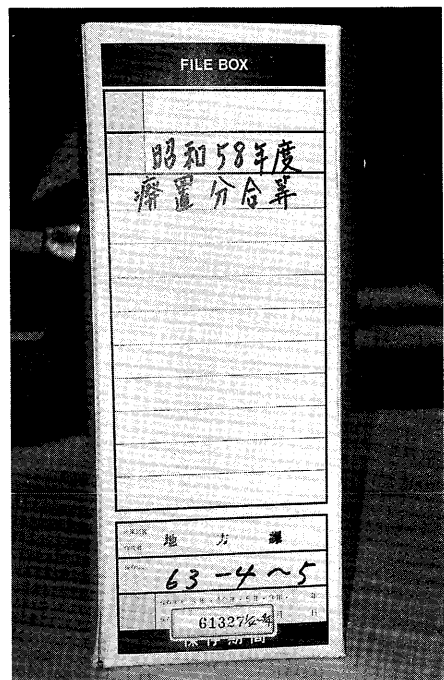 FILE BOX
昭和58年度
廃置分合等
地方課
63-4~5
61327
保存期間